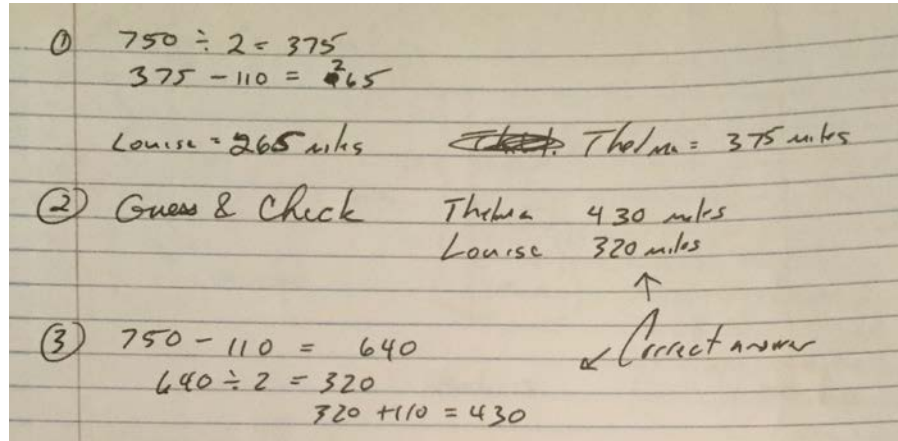 ① 750 ÷ 2 = 375
375 - 110 = 265
Louise = 265 miles Thelma = 375 miles
② Guess & Check Thelma 430 miles
Louise 320 miles
③ 750 - 110 = 640 Correct answer
640 ÷ 2 = 320
320 + 110 = 430